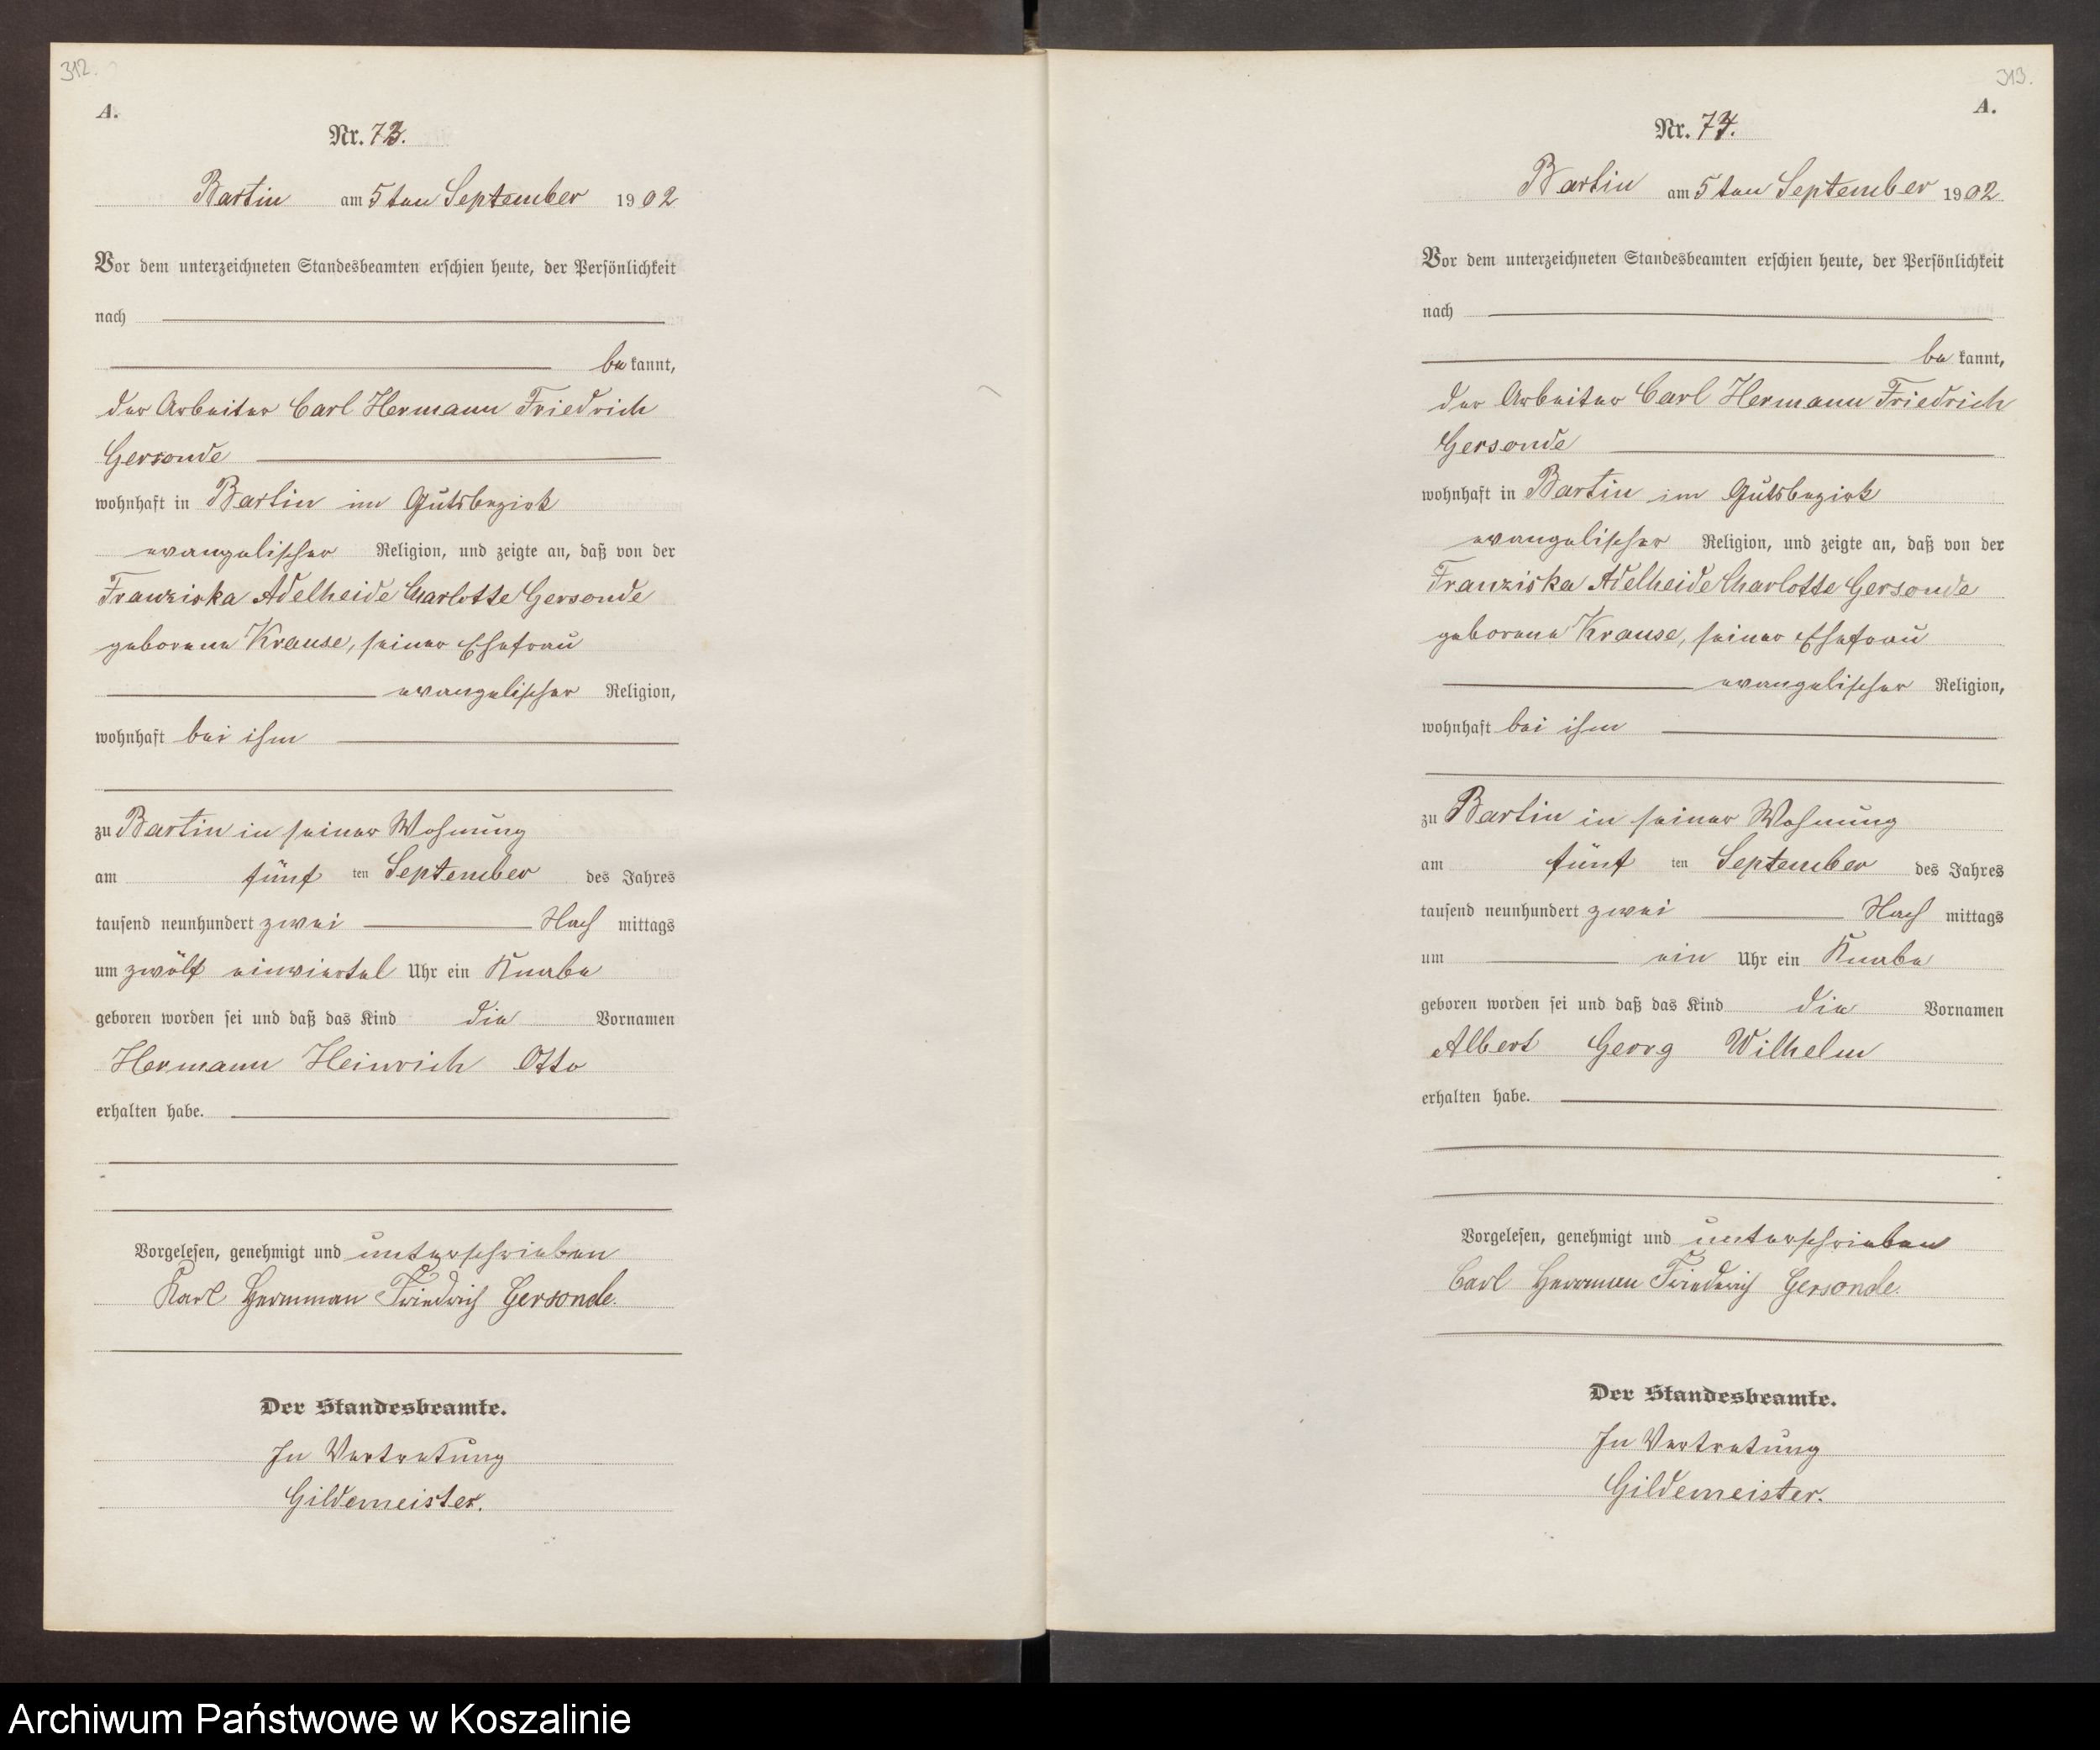 312.
A.
Nr. 73.
Bartin am 5ten September 1902
Vor dem unterzeichneten Standesbeamten erschien heute, der Persönlichkeit
nach
bekannt,
der Arbeiter Carl Hermann Friedrich
Gersonde
wohnhaft in Bartin im Gutsbezirk
evangelischer Religion, und zeigte an, daß von der
Franziska Adelheide Charlotte Gersonde
geborene Krause, seiner Ehefrau
evangelischer Religion,
wohnhaft bei ihm
zu Bartin in seiner Wohnung
am fünf ten September des Jahres
tausend neunhundert zwei Nach mittags
um zwölf einviertel Uhr ein Knabe
geboren worden sei und daß das Kind die Vornamen
Hermann Heinrich Otto
erhalten habe.
Vorgelesen, genehmigt und unterschrieben
Karl Hermman Friedrich Gersonde.
Der Standesbeamte.
In Vertretung
Gildemeister.
313.
A.
Nr. 74.
Bartin am 5ten September 1902
Vor dem unterzeichneten Standesbeamten erschien heute, der Persönlichkeit
nach
bekannt,
der Arbeiter Carl Hermann Friedrich
Gersonde
wohnhaft in Bartin im Gutsbezirk
evangelischer Religion, und zeigte an, daß von der
Franziska Adelheide Charlotte Gersonde
geborene Krause, seiner Ehefrau
evangelischer Religion,
wohnhaft bei ihm
zu Bartin in seiner Wohnung
am fünf ten September des Jahres
tausend neunhundert zwei Nach mittags
um ein Uhr ein Knabe
geboren worden sei und daß das Kind die Vornamen
Albert Georg Wilhelm
erhalten habe.
Vorgelesen, genehmigt und unterschrieben
Carl Herrman Friedrich Gersonde.
Der Standesbeamte.
In Vertretung
Gildemeister.
Archiwum Państwowe w Koszalinie